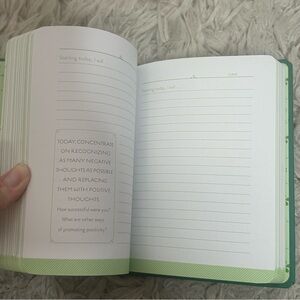 Starting today, I will
TODAY, CONCENTRATE
ON RECOGNIZING
AS MANY NEGATIVE
THOUGHTS AS POSSIBLE
AND REPLACING
THEM WITH POSITIVE
THOUGHTS.
How successful were you?
What are other ways
of promoting positivity?
Starting today, I will